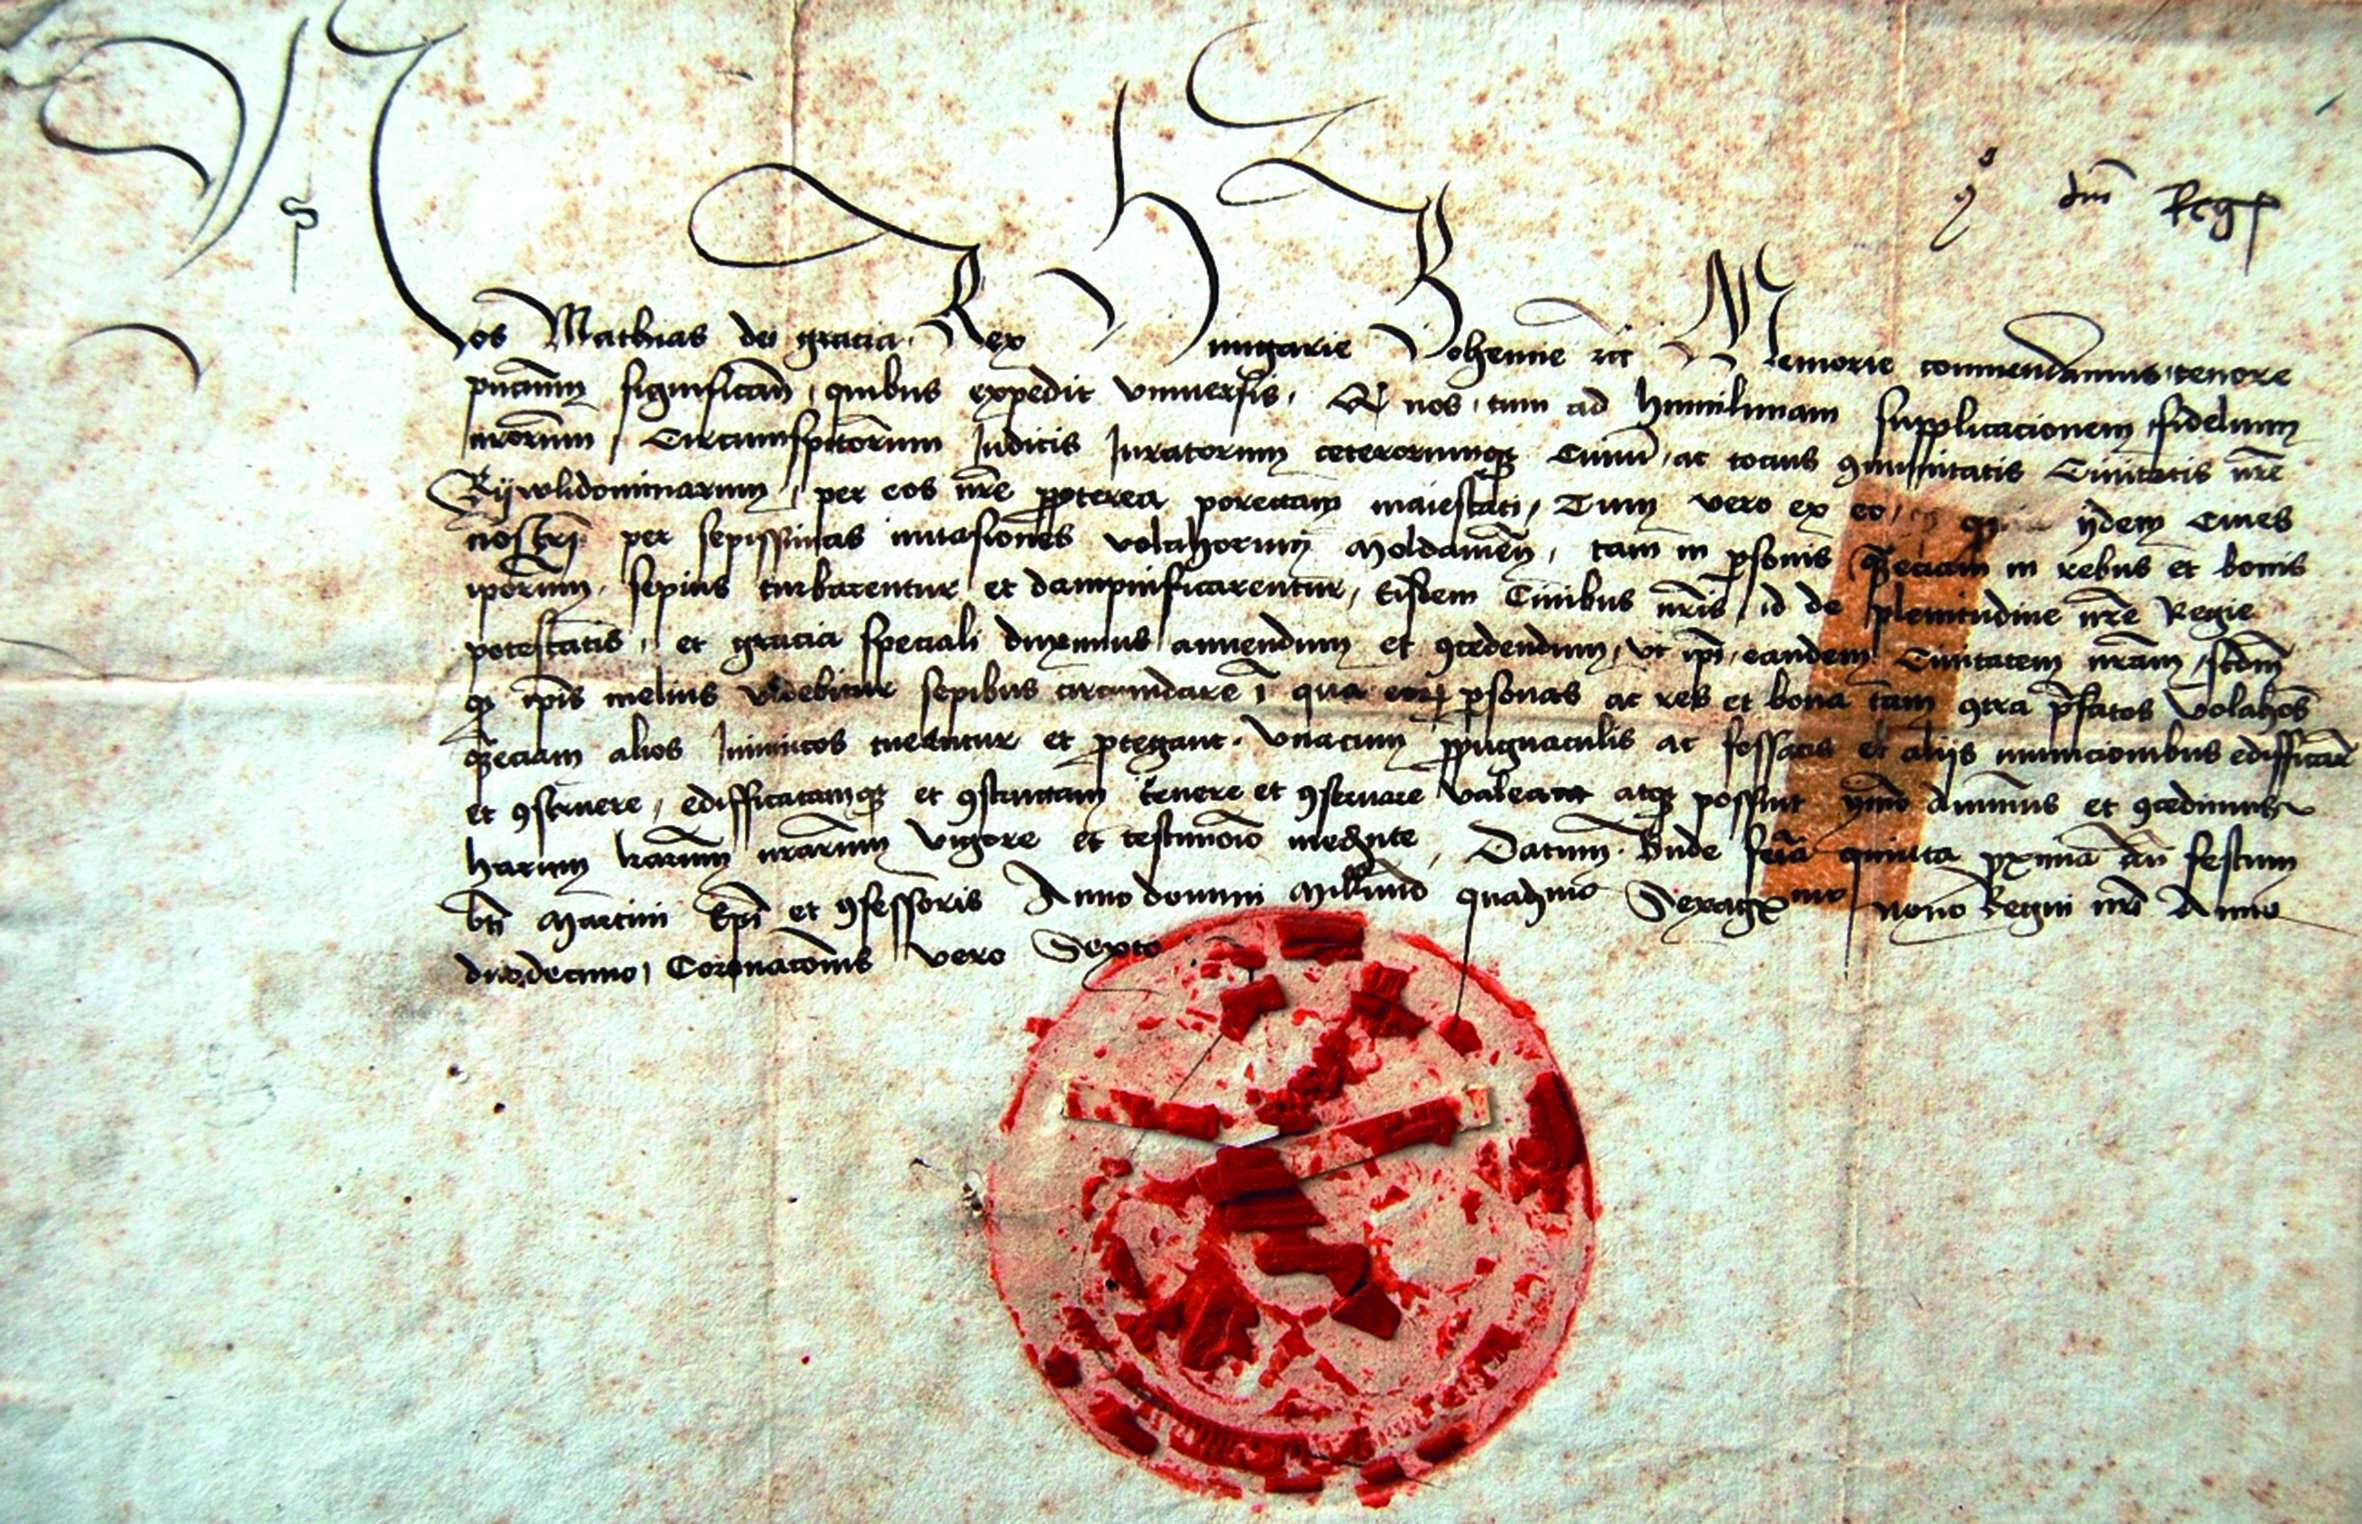 dm Regis
Nos Mathias dei gracia Rex Hungarie Bohemie etc Memorie commendamus tenore
pñcium significañ quibus expedit vniuersis, nos tum ad humilimam supplicacionem fidelium
nrorum Circumspectorum Judicis Juratorum ceterorumque Ciuiũ ac tocius cõmunitatis Ciuitatis nre
Rijwlidominarum, per eos nre propterea porectam maiestati, Tum vero ex eo, ijdem Ciues
nostri per sepissimas inuasiones volahorum Moldauieñ, tam in psonis qzeciam in rebus et bonis
ipõrum, sepius turbarentur et dampnificarentur, Eisdem Ciuibus nris, id de plenitudine nre Regie
potestatis, et gracia speciali duximus annuendum et cõcedendum, vt ipi, eandem Ciuitatem nram, scdm
qz ipis melius videbitur sepibus circumdare qua eorum psonas ac res et bona tam cõtra pfatos volahos
qzeciam alios Inimicos tuentur et ptegant. Vnacum ppugnaculis ac fossatis et alijs municionibus edifficare
et cõstruere, edifficatamqz et cõstructam tenere et cõseruare valeant atqz possint ymo Annuimus et cõcedimus
harum lrarum nrarum vigore et testimonio mediante, Datum Bude feria quinta pxima festum
bti Martini Epi et cõfessoris Anno domini Millmo quadmo Sexagmo nono Regni nri Anno
duodecimo, Coronacõnis vero Sexto